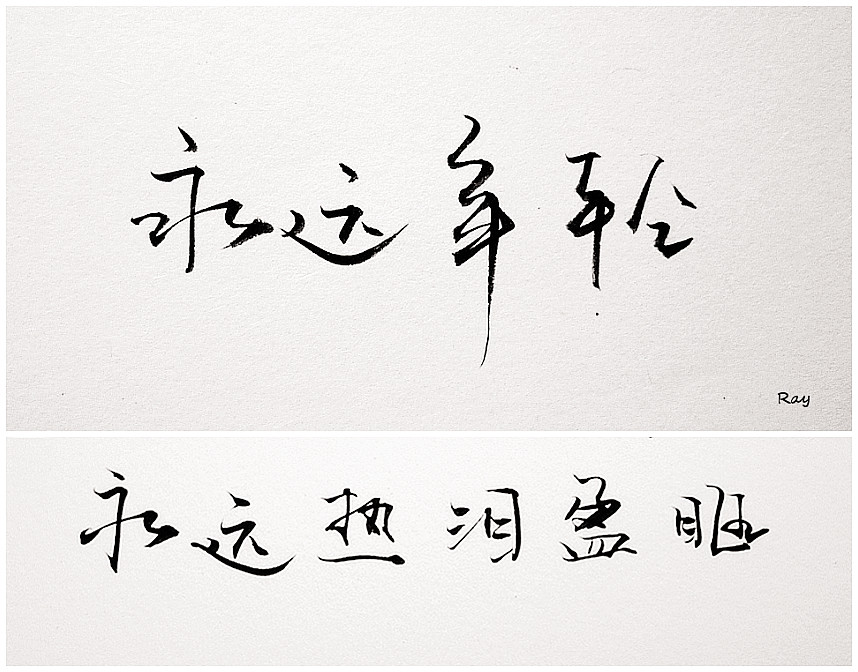 永远年轻
Ray
永远热泪盈眶